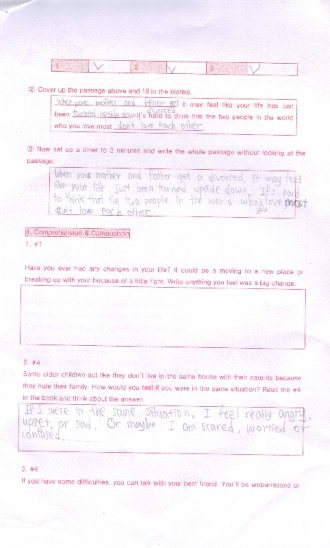 1 2 3
② Cover up the passage above and fill in the blanks.
When your mother and father get divorced it may feel like your life has just
been turned upside down. It's hard to think that the two people in the world
who you love most don't love each other
③ Now set up a timer to 3 minutes and write the whole passage without looking at the
passage.
When your mother and father get a divorced, it may feel
like your life just been turned upside down. It's hard
to think that the two people in the world who love most
don't love each other. you
4. Comprehension & Composition
1. #1
Have you ever had any changes in your life? It could be a moving to a new place or
breaking up with your because of a little fight. Write anything you feel was a big change.
2. #4
Some older children act like they don't live in the same house with their parents because
they hate their family. How would you feel if you were in the same situation? Read the #4
in the book and think about the answer.
If I were in the same situation, I feel really angry,
upset, or sad. Or maybe I am scared, worried or
confused.
3. #6
If you have some difficulties, you can talk with your best friend. You'll be embarrassed or